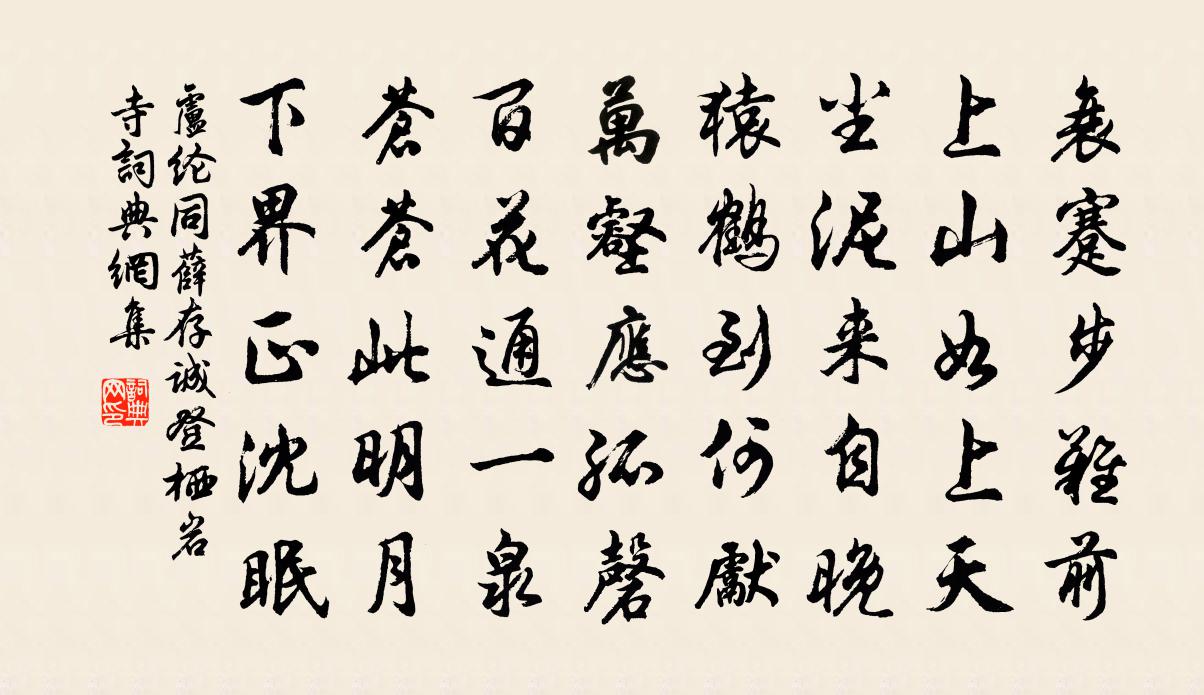 衰蹇步難前
上山如上天
尘泥来自晚
猿鶴到何獻
萬壑應孤磬
百花通一泉
蒼蒼此明月
下界正沈眠
盧纶同薛存誠登栖岩
寺詞典網集
詞典
网印